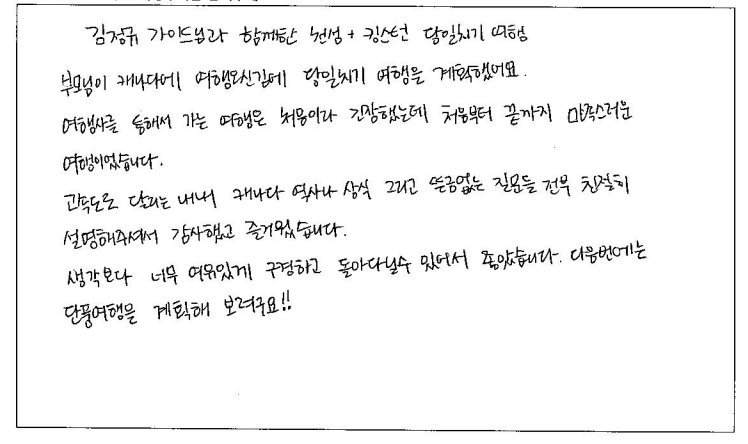 김정규 가이드님과 함께한 천섬 + 킹스턴 당일치기 여행
부모님이 캐나다에 여행오신김에 당일치기 여행을 계획했어요.
여행사를 통해서 가는 여행은 처음이라 긴장했는데 처음부터 끝까지 만족스러운
여행이었습니다.
고속도로 달리는 내내 캐나다 역사나 상식 그리고 뜬금없는 질문들 전부 친절히
설명해주셔서 감사했고 즐거웠습니다.
생각보다 너무 여유있게 구경하고 돌아다닐수 있어서 좋았습니다. 다음번에는
단풍여행을 계획해 보려구요!!